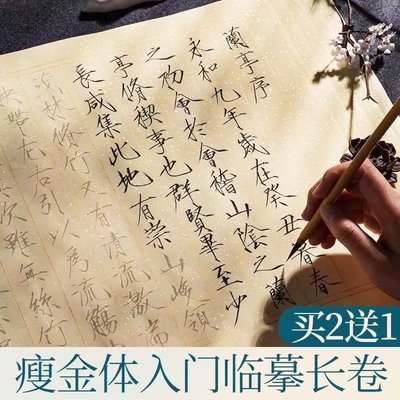 蘭亭序
永和九年歲在癸丑暮春
之初會於會稽山陰之蘭
亭脩禊事也群賢畢至少
長咸集此地有崇山峻領
茂林脩竹又有清流激湍
映帶左右引以為流觴
次雖無絲竹
买2送1
瘦金体入门临摹长卷